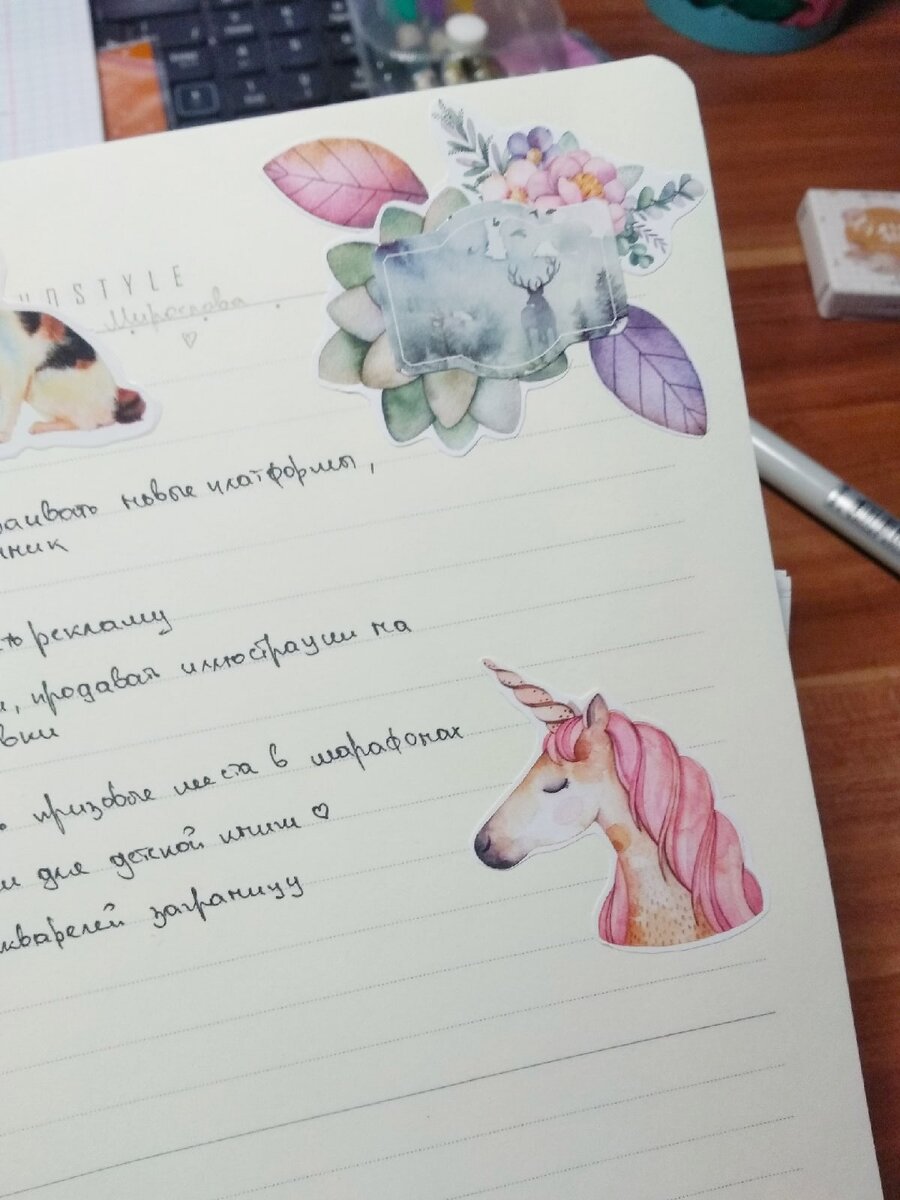 UNSTYLE
Мирослава
раивать новые платформы,
чник
рекламу
и, продавая иллюстрации на
вки
призовые места в марафонах
и для детской книги ♡
кварелей заграницу